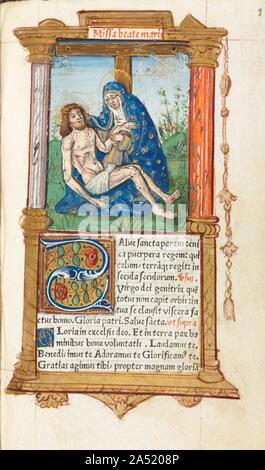 Missa beate marie
Salue sancta parens enix
a puerpera regem: qui
celum terrāq; regit: in
secula seculorum. Vsus.
Virgo dei genitrix quē
totus non capit orbis: in
tua se clausit viscera fa
ctus homo. Gloria patri. Salue sācta. vt supra
Gloria in excelsis deo. Et in terra pax ho
minibus bone voluntatis. Laudamus te.
Benedicimus te Adoramus te Glorificamꝰ te.
Gratias agimus tibi propter magnam gloriā
alamy
Image ID: 2A5208P
www.alamy.com